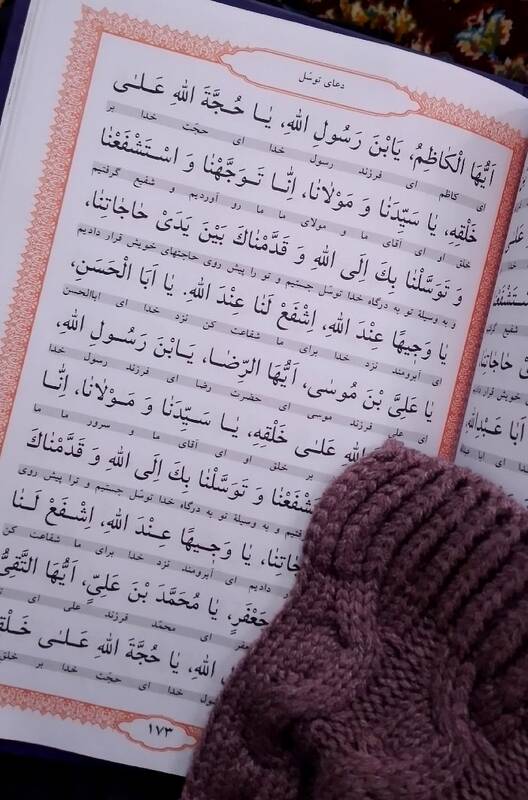 دعای توسّل
اَیُّهَا الْکاظِمُ، یَابْنَ رَسُولِ اللهِ، یا حُجَّةَ اللهِ عَلیٰ
ای کاظم ای فرزند رسول خدا ای حجّت خدا بر
خَلْقِهِ، یا سَیِّدَنا وَ مَوْلانا، اِنّا تَوَجَّهْنا وَ اسْتَشْفَعْنا
خلق او ای آقای ما و مولای ما ما رو آوردیم و شفیع گرفتیم
وَ تَوَسَّلْنا بِکَ اِلَی اللهِ وَ قَدَّمْناکَ بَیْنَ یَدَیْ حاجاتِنا،
و به وسیلهٔ تو به درگاه خدا توسّل جستیم و تو را پیش روی حاجتهای خویش قرار دادیم
یا وَجیهًا عِنْدَ اللهِ، اِشْفَعْ لَنا عِنْدَ اللهِ. یا اَبَا الْحَسَنِ،
ای آبرومند نزد خدا برای ما شفاعت کن نزد خدا ای اباالحسن
یا عَلِیَّ بْنَ مُوسیٰ، اَیُّهَا الرِّضا، یَابْنَ رَسُولِ اللهِ،
ای علی فرزند موسی ای حضرت رضا ای فرزند رسول خدا
اللهِ عَلیٰ خَلْقِهِ، یا سَیِّدَنا وَ مَوْلانا، اِنّا
بر خلق او ای آقای ما و سرور ما ما
وَ تَوَسَّلْنا بِکَ اِلَی اللهِ وَ قَدَّمْناکَ
و به وسیلهٔ تو به درگاه خدا توسّل جستیم و ترا پیش روی
یا وَجیهًا عِنْدَ اللهِ، اِشْفَعْ لَنا
دادیم ای آبرومند نزد خدا برای ما شفاعت کن
جَعْفَرٍ، یا مُحَمَّدَ بْنَ عَلِیٍّ، اَیُّهَا التَّقِیُّ
ای محمّد فرزند علی ای
اللهِ، یا حُجَّةَ اللهِ عَلیٰ خَلْقِهِ
خدا ای حجّت خدا بر خلق
۱۷۳